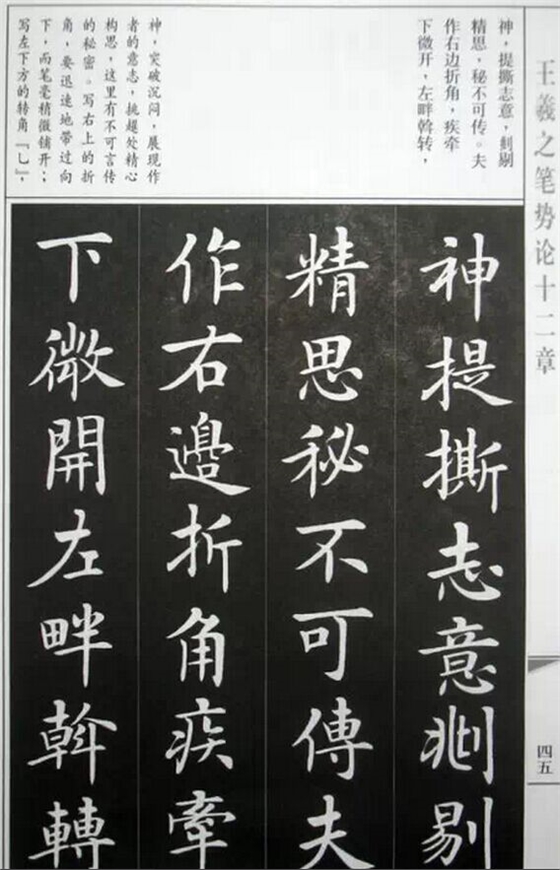 王羲之笔势论十二章
神，提撕志意，剔
精思，秘不可传。夫
作右边折角，疾牵
下微开，左畔斡转，
神，突破沉闷，展现作
者的意志，挑趯处精心
构思，这里有不可言传
的秘密。写右上的折
角，要迅速地带过向
下，而笔毫稍微铺开；
写左下方的转角『乚』，
神提撕志意剔
精思秘不可傳夫
作右邊折角疾牽
下微開左畔斡轉
四五